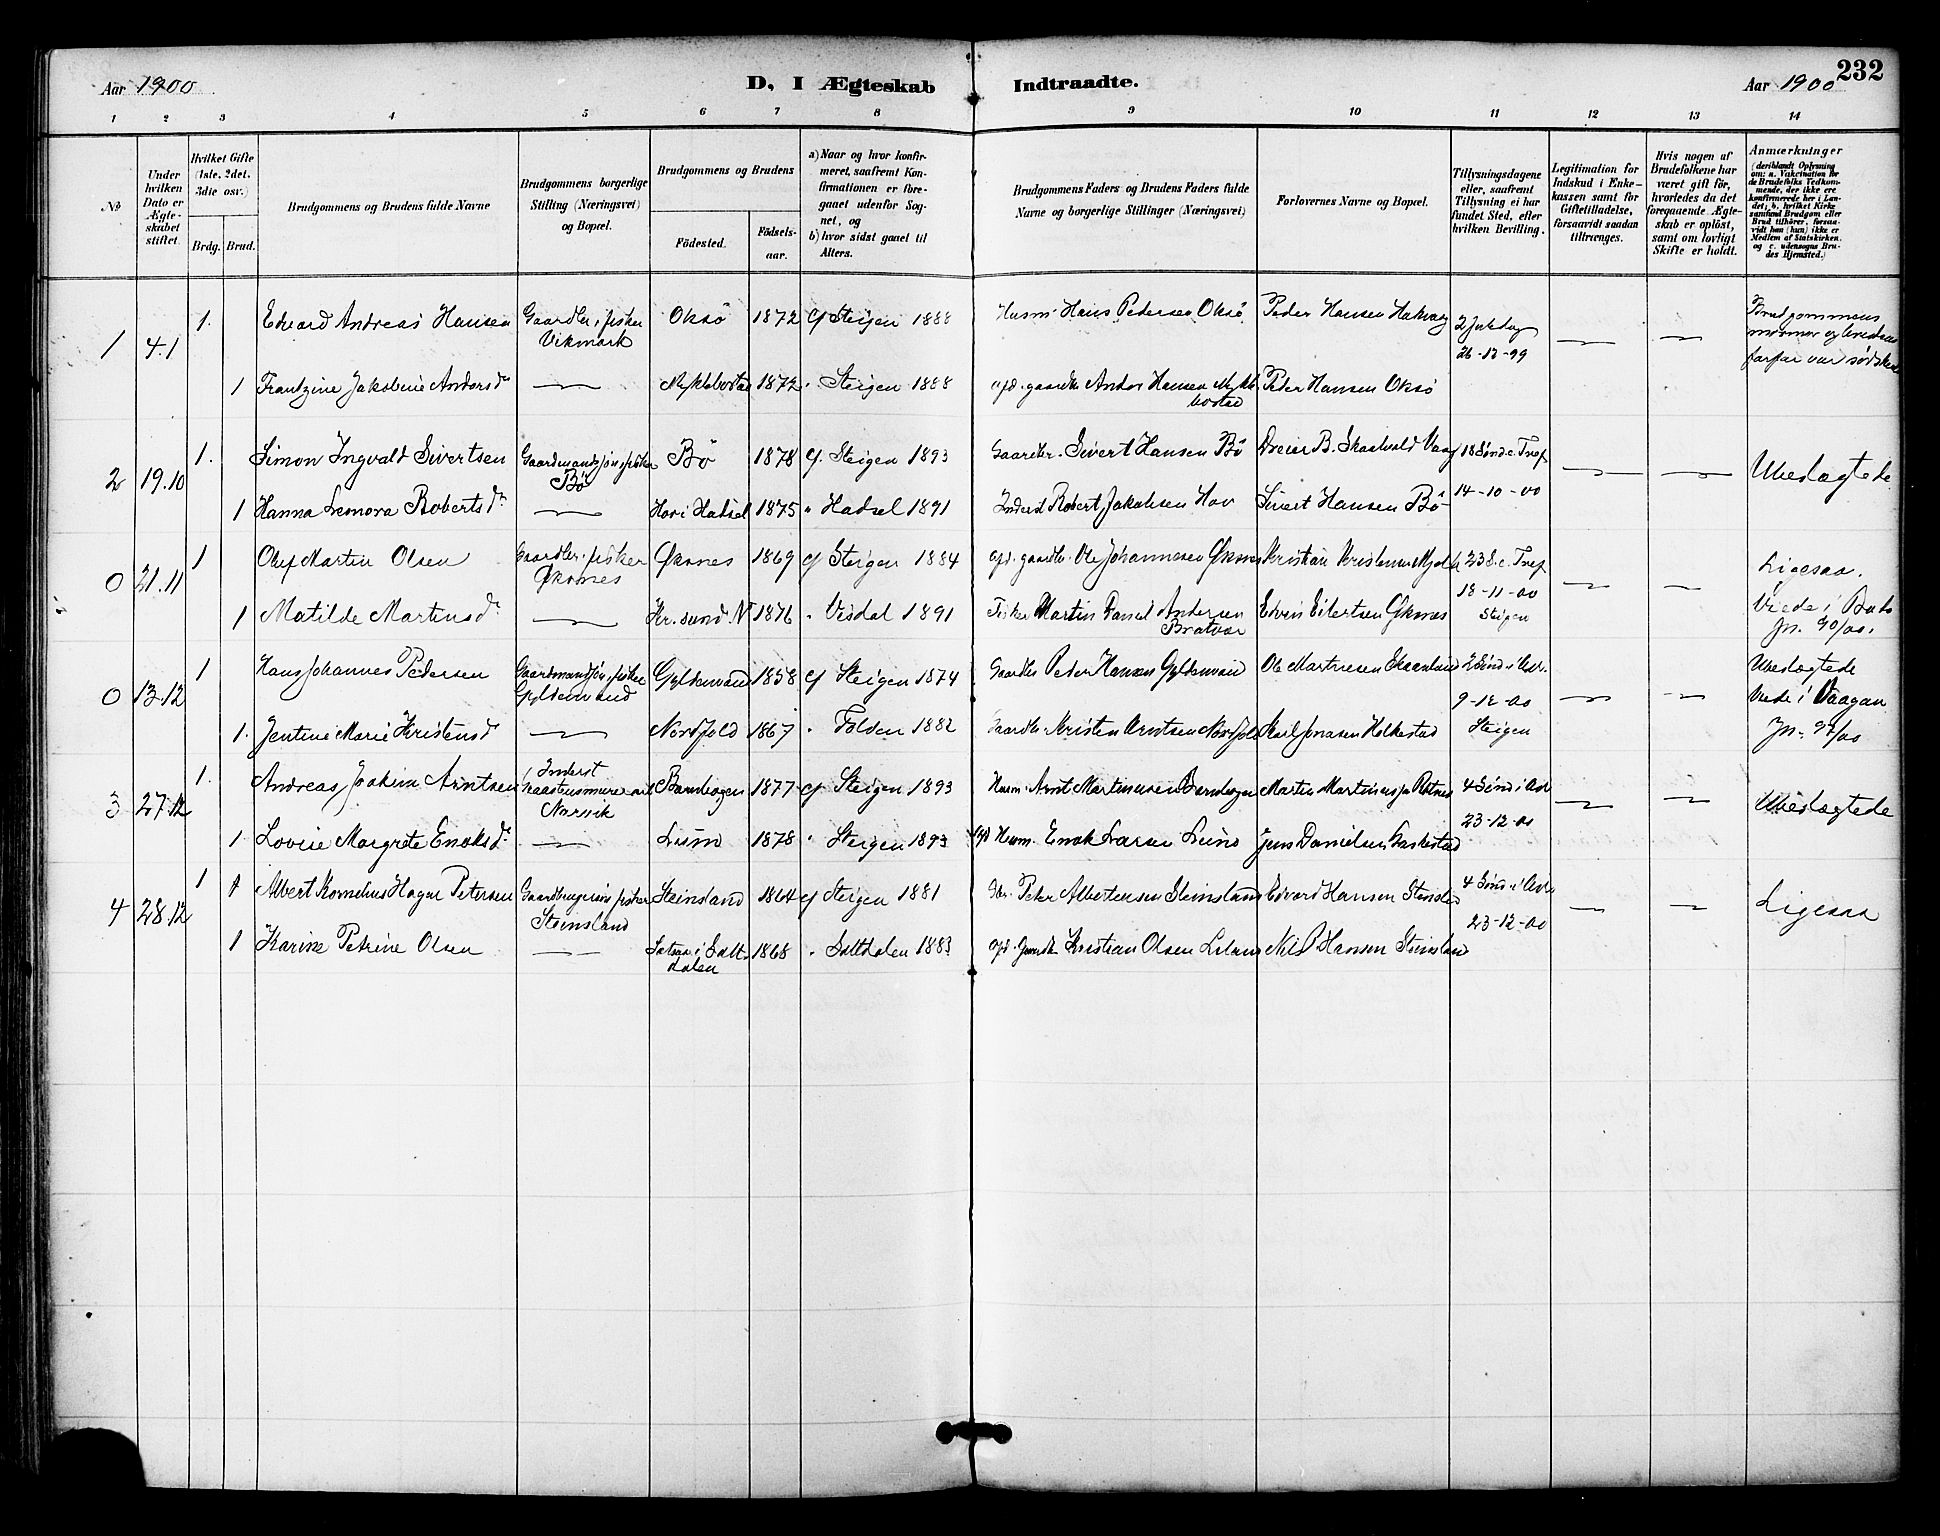 232
Aar 1900
D, I Ægteskab Indtraadte.
Aar 1900
1 2 3 4 5 6 7 8 9 10 11 12 13 14
No
Under hvilken Dato er Ægteskabet stiftet.
Hvilket Gifte (1ste, 2det, 3die osv.)
Brdg. Brud.
Brudgommens og Brudens fulde Navne
Brudgommens borgerlige Stilling (Næringsvei) og Bopæl.
Brudgommens og Brudens
Födested. Födsels-aar.
a) Naar og hvor konfirmeret, saafremt Konfirmationen er foregaaet udenfor Sognet, og
b) hvor sidst gaaet til Alters.
Brudgommens Faders og Brudens Faders fulde Navne og borgerlige Stillinger (Næringsvei)
Forlovernes Navne og Bopæl.
Tillysningsdagene eller, saafremt Tillysning ei har fundet Sted, efter hvilken Bevilling.
Legitimation for Indskud i Enkekassen samt for Giftetilladelse, forsaavidt saadan tiltrænges.
Hvis nogen af Brudefolkene har været gift för, hvorledes da det foregaaende Ægteskab er oplöst, samt om lovligt Skifte er holdt.
Anmærkninger
(deriblandt Oplysning om: a. Vakcination for de Brudefolks Vedkommende, der ikke ere konfirmerede her i Landet; b. hvilket Kirkesamfund Brudgom eller Brud tilhörer, forsaavidt han (hun) ikke er Medlem af Statskirken, og c. udensogns Brudes Hjemsted.)
1 4.1 1. Edvard Andreas Hansen Gaardbr. fisker Vikmark Oksö 1872 cf Steigen 1888 Husm. Hans Pedersen Oksö Peder Hansen Hakvag 2 Juledag 26-12-99 Brudgommens mormor og brudens farfar var södskende
1 Frantzine Jakobine Andersdr. Myklebostad 1872 " Steigen 1888 afd. gaardbr. Anders Hansen Myklebostad Peder Hansen Oksö
2 19.10 1. Simon Ingvald Sivertsen Gaardmandssön, fisker Bö Bö 1878 cf. Steigen 1893 Gaardbr. Sivert Hansen Bö B. Skaalvold 18 Sönd. e. Tref 14-10-00 Ubeslægtede
1 Hanna Leonora Robertsdr. Hov i Hadsel 1875 " Hadsel 1891 Inderst Robert Jakobsen Hov Sivert Hansen Bö
0 21.11 1 Oluf Martin Olsen Gaardbr. fisker Öksnes Öksnes 1869 cf Steigen 1884 afd. gaardbr. Ole Johannesen Öksnes Kristian Kristensen 23 S. e. Tref 18-11-00 Steigen Ligesaa. Viede i Bodö Jn. 90/00.
1 Matilde Martinsdr. Kr.sund N 1876 " Visdal 1891 Fisker Martin Daniel Andersen Bratvær Edvin Eilertsen Öksnes
0 13.12 1 Hans Johannes Pedersen Gaardmandssön, fisker Gyldenvand Gyldenvand 1858 cf Steigen 1874 Gaardbr. Peder Hansen Gyldenvan Ole Martinesen 2 Sönd i Adv. 9-12-00 Steigen Ubeslægtede Viede i Vaagan Jn. 97/00
1. Jentine Marie Kristensdr Nordfold 1867 " Folden 1882 Gaardbr. Kristen Arntsen Nordfold Karl Jonasen Holkestad
3 27.12 1. Andreas Joakim Arntsen Inderst Narvik Barnhogen 1877 cf Steigen 1893 Husm. Arnt Martinusen Barnhogen Martin Martinussen 4 Sönd i Adv 23-12-00 Ubeslægtede
1. Lovise Margrete Enoksdr. Lund 1878 " Steigen 1893 Afd Husm. Enok Larsen Lund Jens Danielsen Laskestad
4 28.12 1 1 Albert Kornelius Hagar Petersen Gaardbruger, fisker Steinsland Steinsland 1864 cf Steigen 1881 Gbr. Peter Albertensen Steinsland Edvard Hansen Steinsland 4 Sönd i Adv. 23-12-00 Ligesaa
1 Karine Petrine Olsen i Saltdalen 1868 " Saltdalen 1883 afd. Gaardbr. Kristian Olsen Nils P Hansen Steinsland